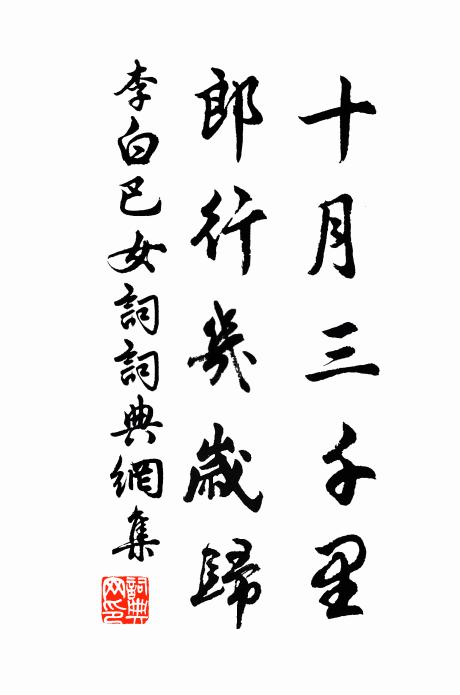 十月三千里
郎行幾歲歸
李白巴女詞詞典網集
詞典网印